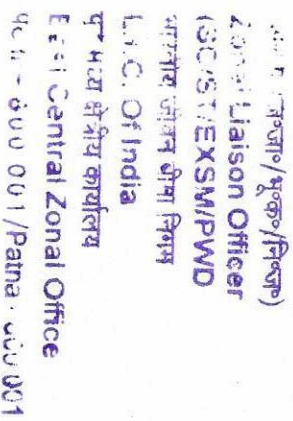 अ०जा०/भू०क०/नि०ज०)
Zonal Liaison Officer
(SC/ST/EXSM/PWD
भारतीय जीवन बीमा निगम
L.I.C. Of India
पूर्व मध्य क्षेत्रीय कार्यालय
East Central Zonal Office
800 001/Patna - 800 001